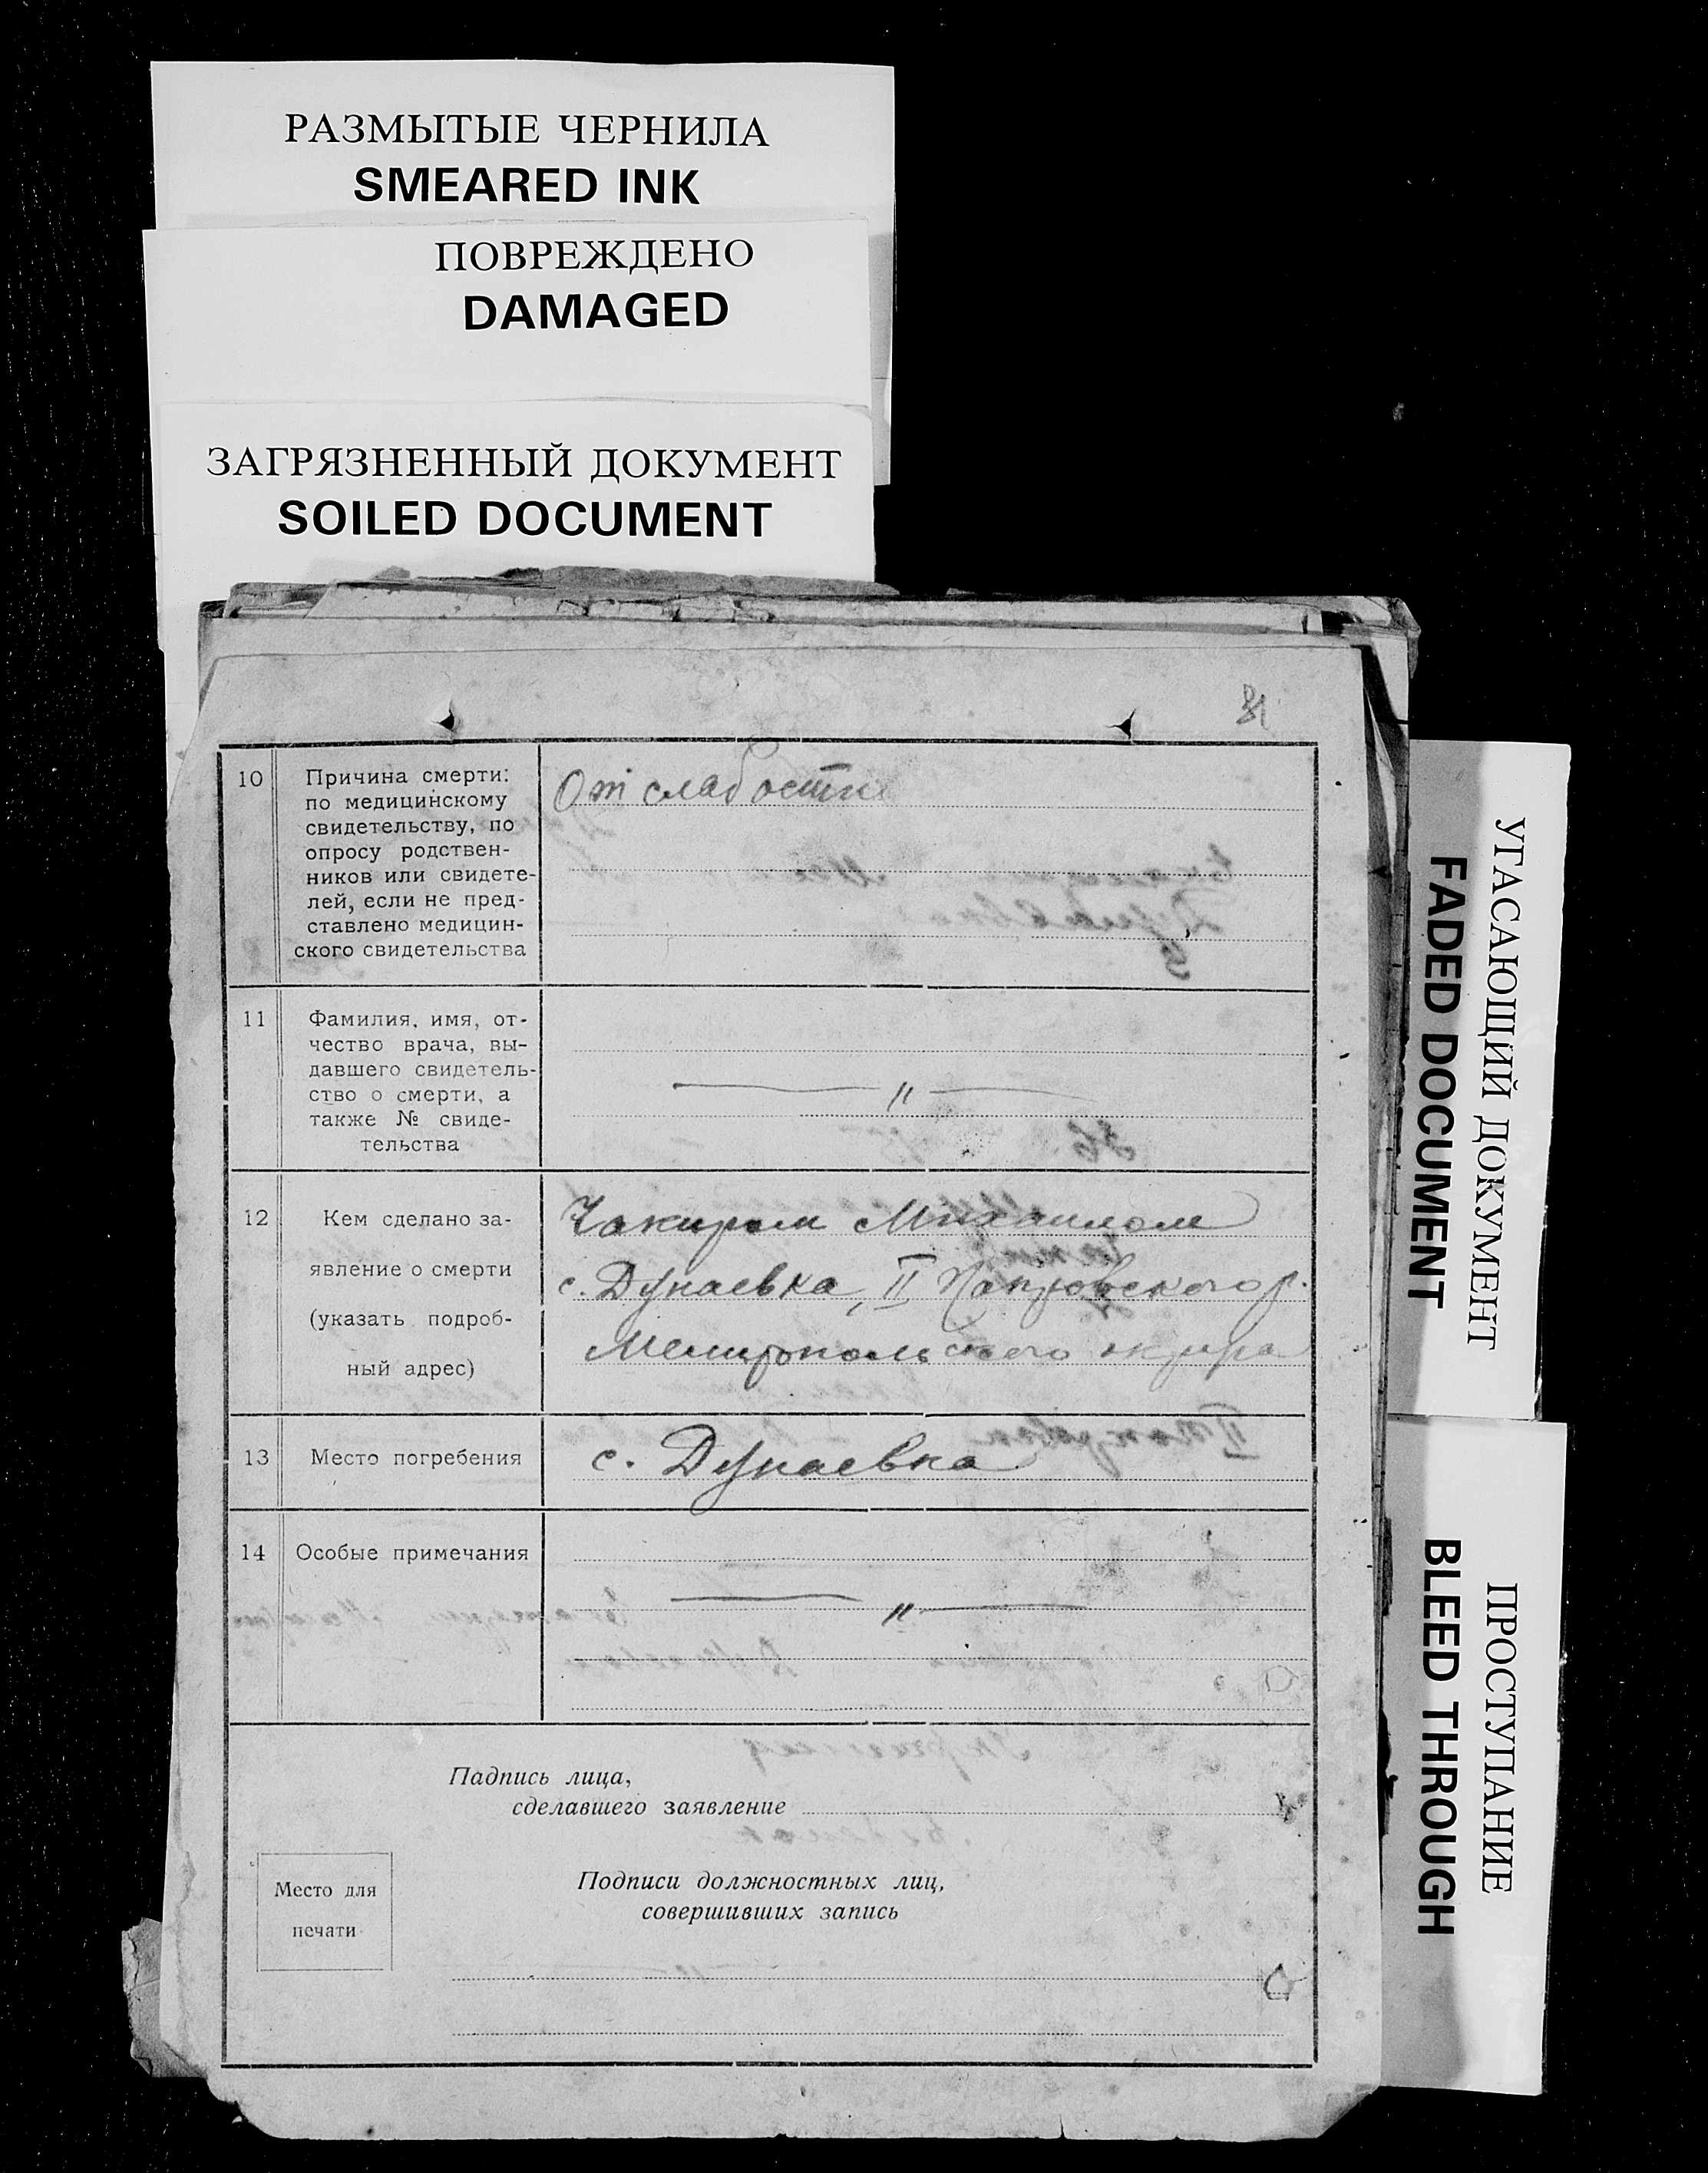 РАЗМЫТЫЕ ЧЕРНИЛА
SMEARED INK
ПОВРЕЖДЕНО
DAMAGED
ЗАГРЯЗНЕННЫЙ ДОКУМЕНТ
SOILED DOCUMENT
81
10
Причина смерти:
по медицинскому
свидетельству, по
опросу родствен-
ников или свидете-
лей, если не пред-
ставлено медицин-
ского свидетельства
От слабости
11
Фамилия, имя, от-
чество врача, вы-
давшего свидетель-
ство о смерти, а
также № свиде-
тельства
— " —
12
Кем сделано за-
явление о смерти
(указать подроб-
ный адрес)
Чакиром Михаилом
с. Дунаевка, II Покровского р.
Мелитопольского округа
13
Место погребения
с. Дунаевка
14
Особые примечания
— " —
Падпись лица,
сделавшего заявление
Подписи должностных лиц,
совершивших запись
Место для
печати
УГАСАЮЩИЙ ДОКУМЕНТ
FADED DOCUMENT
ПРОСТУПАНИЕ
BLEED THROUGH